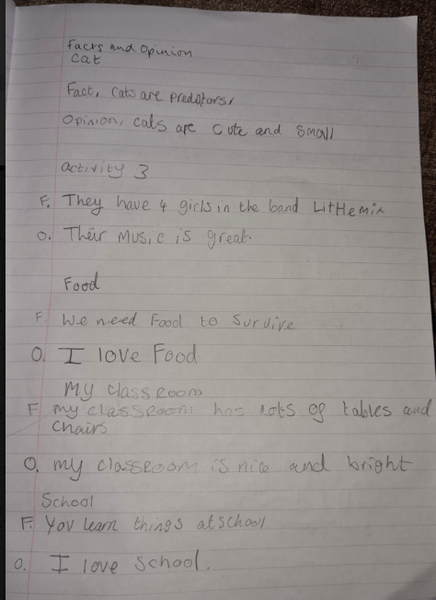 Facts and Opinion
Cat
Fact, Cats are predators,
Opinion, cats are Cute and Small
activity 3
F. They have 4 girls in the band Littlemix
O. Their Music is great.
Food
F We need Food to Survive
O. I love Food
My classroom
F. my classroom has lots of tables and
Chairs
O. my classroom is nice and bright
School
F. You learn things at School
O. I love School.